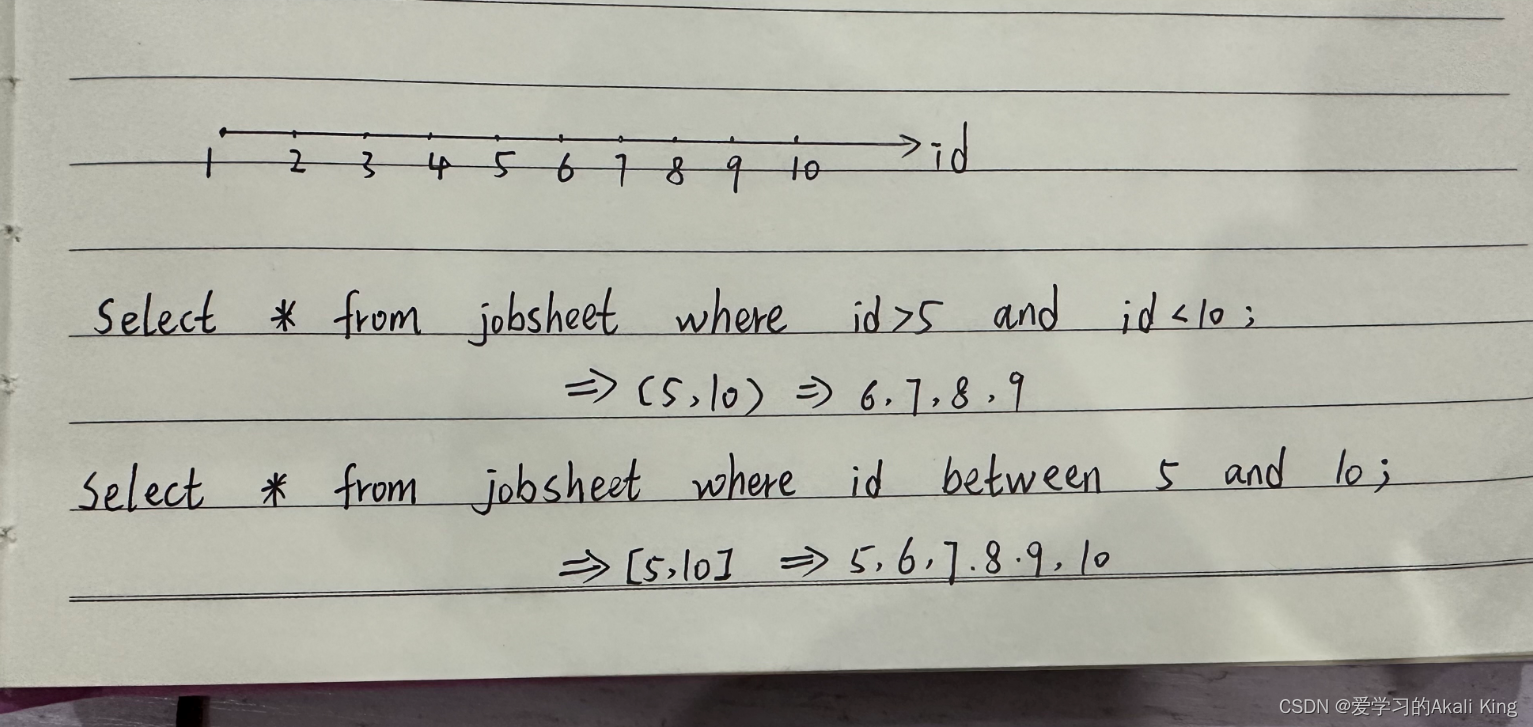 1 2 3 4 5 6 7 8 9 10 id
Select * from jobsheet where id>5 and id<10;
⇒ (5,10) ⇒ 6,7,8,9
Select * from jobsheet where id between 5 and 10;
⇒ [5,10] ⇒ 5,6,7.8.9,10
CSDN @爱学习的Akali King